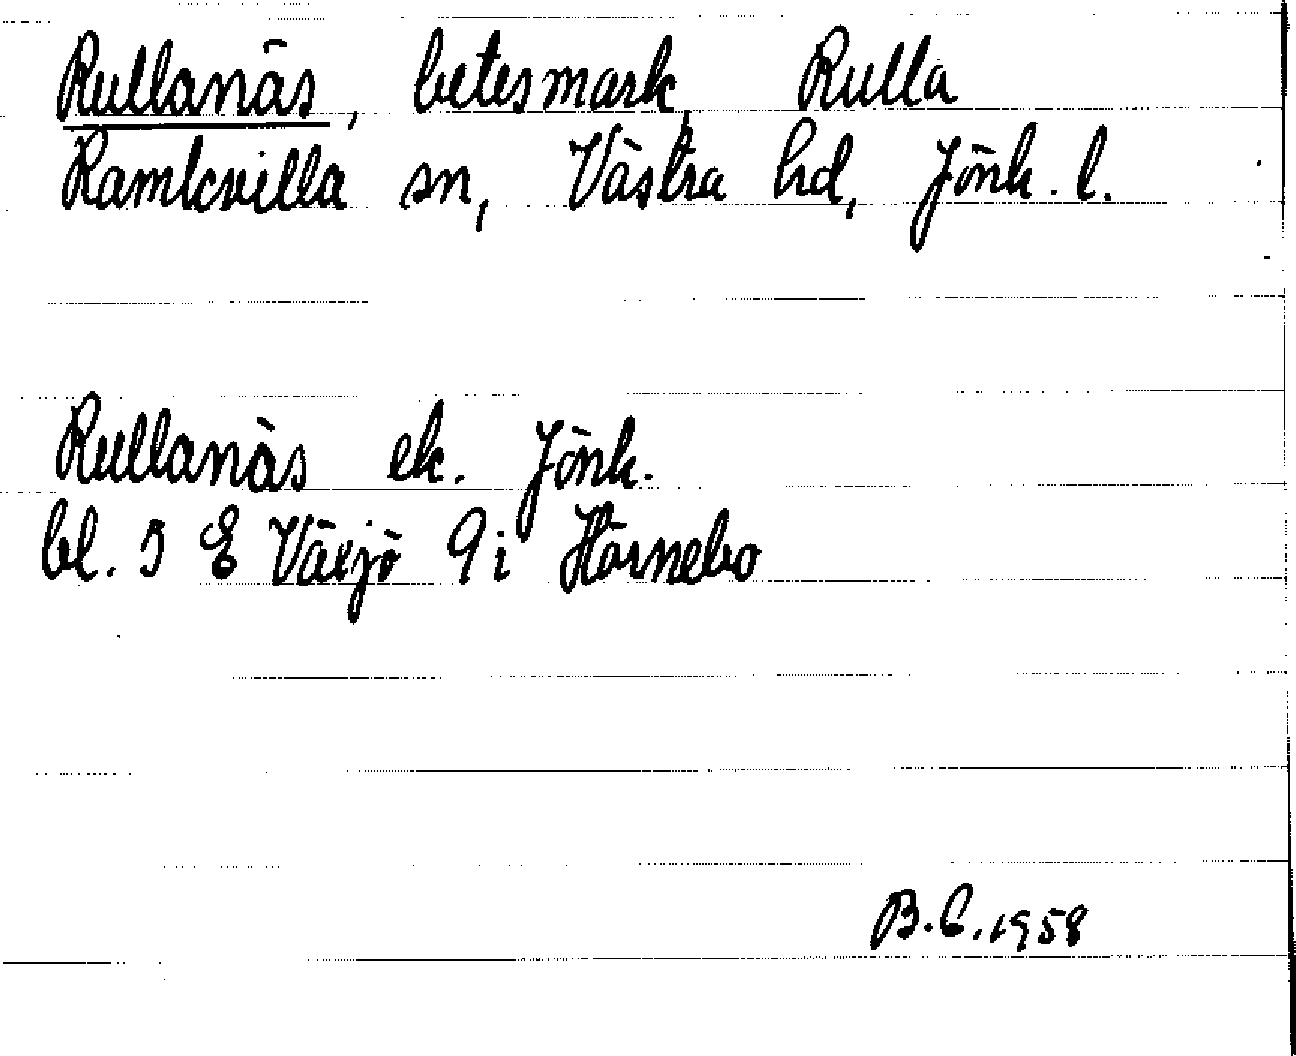 Rullanäs, betesmark, Rulla
Ramkvilla sn, Västra hd, Jönk. l.
Rullanäs ek. Jönk.
bl. 5 E Växjö 9i Hårnebo
B.C. 1958